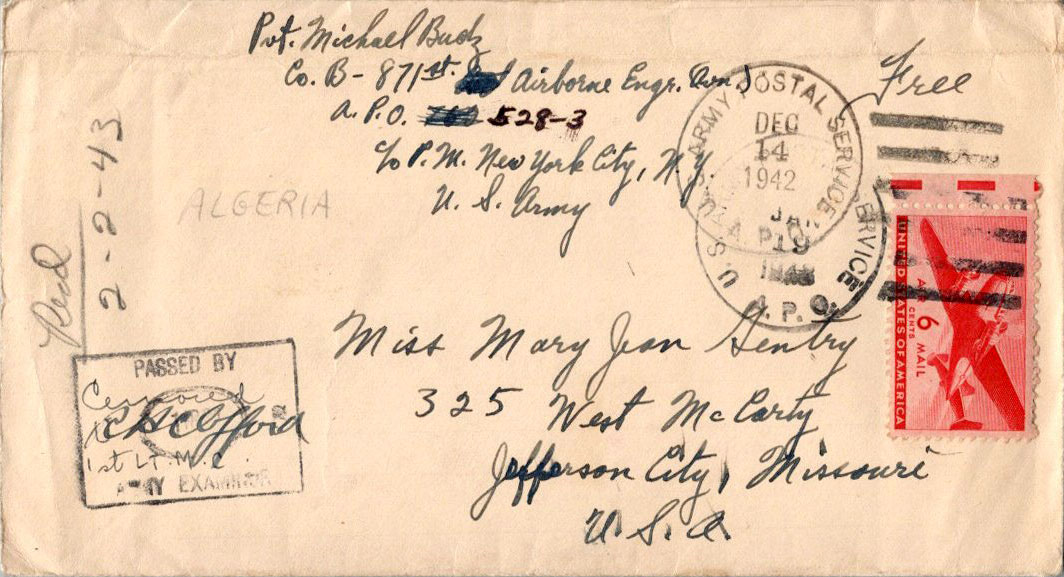 Pvt. Michael Budz
Co. B - 871st. Airborne Engr. 
A.P.O. 528-3
c/o P.M. New York City, N.Y.
U. S. Army
Free
ALGERIA
Recd
2-2-43
ARMY POSTAL SERVICE
DEC
14
1942
A.P.O.
JAN
19
U.S.
SERVICE
A.P.O.
UNITED STATES OF AMERICA
6 CENTS
AIR MAIL
Miss Mary Jean Gentry
325 West McCarty
Jefferson City, Missouri
U.S.A.
PASSED BY
Censored
1st Lt. M.C.
ARMY EXAMINER